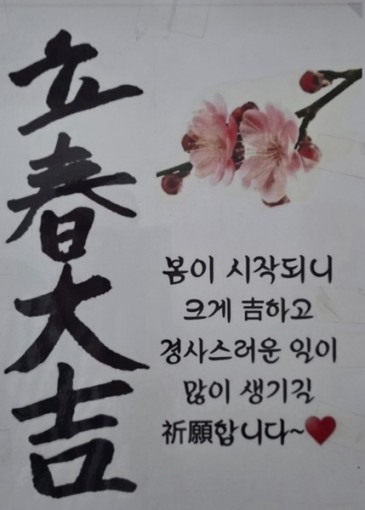 立春大吉
봄이 시작되니
크게 吉하고
경사스러운 일이
많이 생기길
祈願합니다~♥